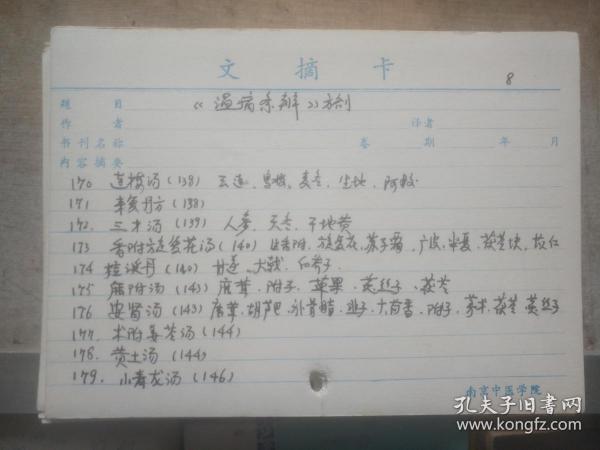 文摘卡
8
题目 《温病条辨》方剂
作者 译者
书刊名称 卷 期 年 月
内容摘要
170 连梅汤(138) 云连、乌梅、麦冬、生地、阿胶
171 来复丹方(138)
172. 三才汤(139) 人参、天冬、干地黄
173 香附旋复花汤(140) 生香附、旋复花、苏子霜、广皮、半夏、茯苓块、苡仁
174 控涎丹(140) 甘遂、大戟、白芥子
175 鹿附汤(143) 鹿茸、附子、草果、菟丝子、茯苓
176 安肾汤(143) 鹿茸、胡芦巴、补骨脂、韭子、大茴香、附子、茅术、茯苓、菟丝子
177. 术附姜苓汤(144)
178. 黄土汤(144)
179. 小青龙汤(146)
南京中医学院
孔夫子旧书网
www.kongfz.com